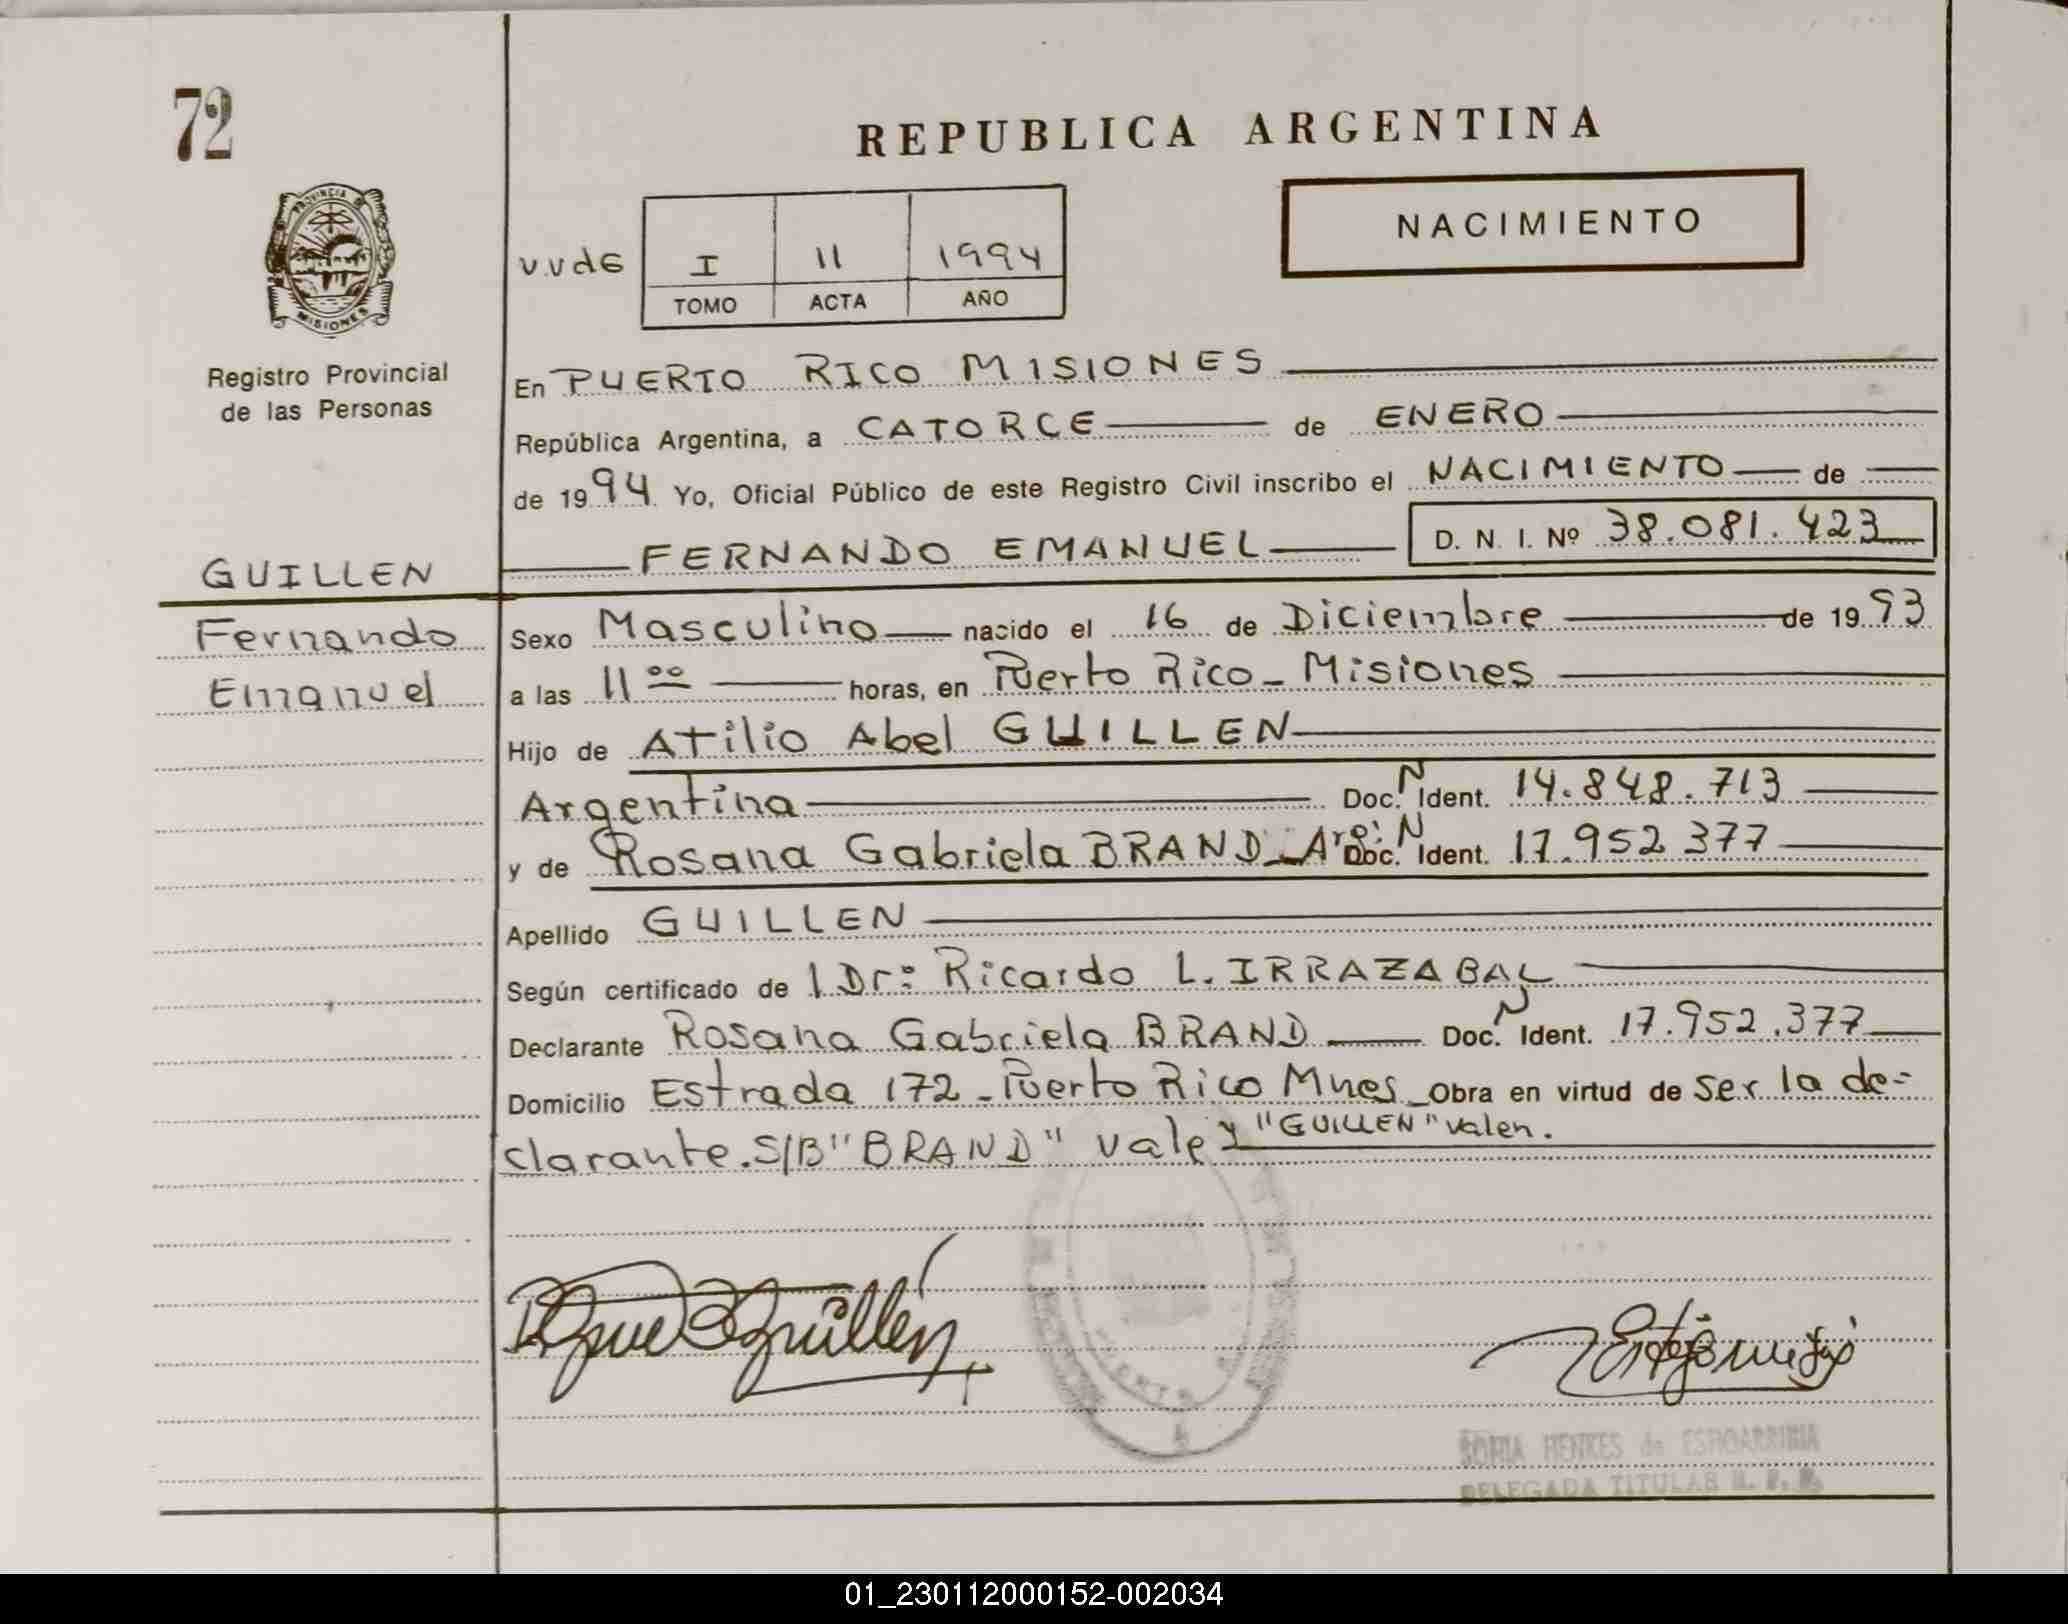 72
REPUBLICA ARGENTINA
NACIMIENTO
PROVINCIA DE
MISIONES
Registro Provincial
de las Personas
v.vdG I 11 1994
TOMO ACTA AÑO
En PUERTO RICO MISIONES
República Argentina, a CATORCE de ENERO
de 1994 Yo, Oficial Público de este Registro Civil inscribo el NACIMIENTO de
FERNANDO EMANUEL D. N. I. Nº 38.081.423
GUILLEN
Fernando
Emanuel
Sexo Masculino nacido el 16 de Diciembre de 1993
a las 11 00 horas, en Puerto Rico - Misiones
Hijo de Atilio Abel GUILLEN
Argentina Doc. N Ident. 14.848.713
y de Rosana Gabriela BRAND - Arg: Doc. N Ident. 17.952 377
Apellido GUILLEN
Según certificado de l Dr: Ricardo L. IRRAZABAL
Declarante Rosana Gabriela BRAND Doc. N Ident. 17.952.377
Domicilio Estrada 172 - Puerto Rico Mnes - Obra en virtud de ser la de=
clarante. S/B "BRAND" vale y "GUILLEN" valen.
DELEGADA TITULAR R. P. P.
01_230112000152-002034